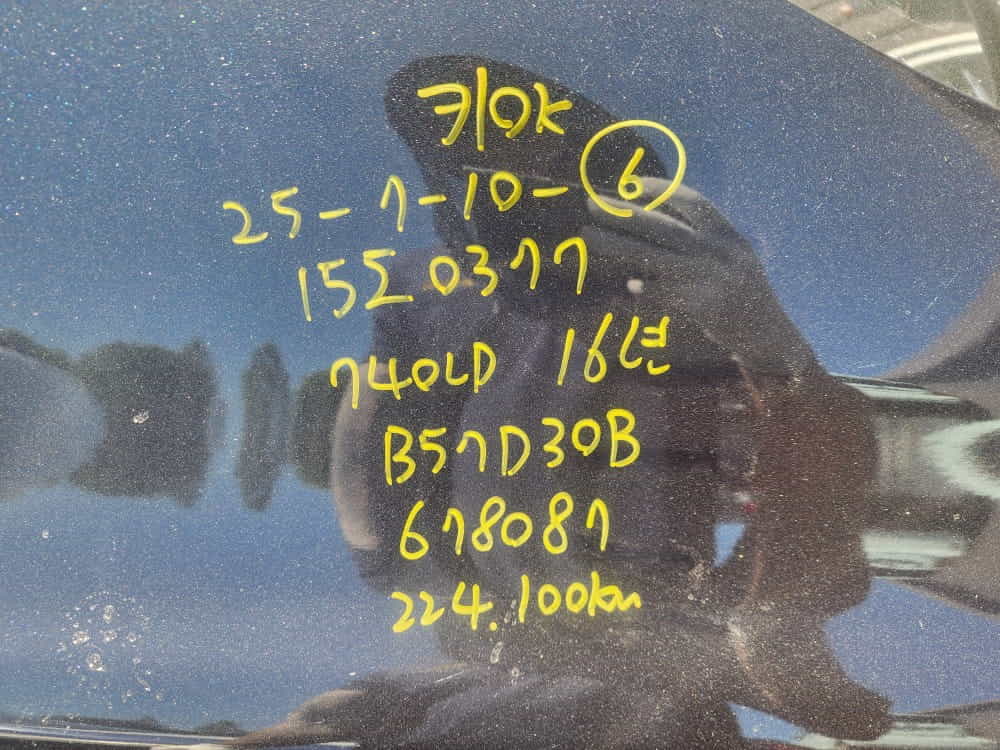 키OK
25-7-10-⑥
15조 0377
740LD 16년
B57D30B
678087
224.100km